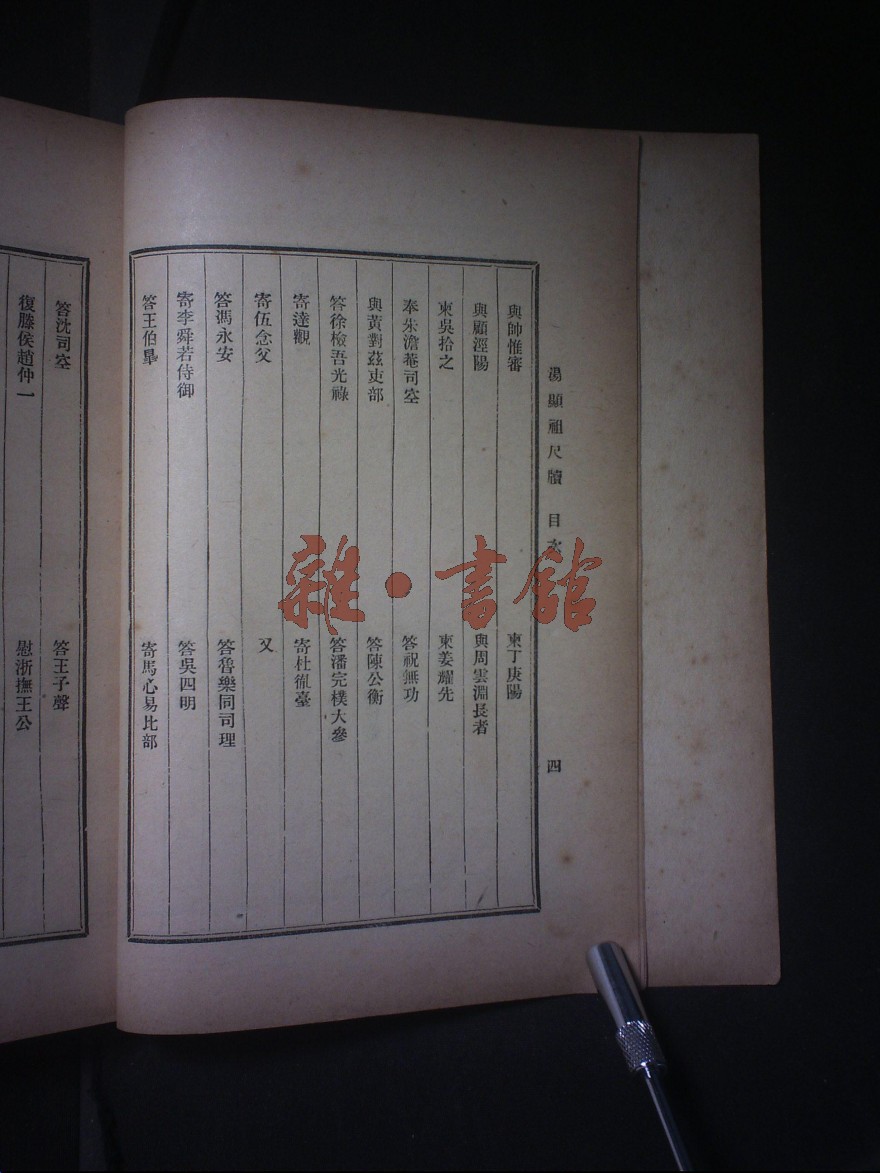 湯顯祖尺牘 目次 四
與帥惟審 柬丁庚陽
與顧涇陽 與周雲淵長者
柬吳拾之 柬姜耀先
奉朱澹菴司空 答祝無功
與黃對茲吏部 答陳公衡
答徐檢吾光祿 答潘完樸大參
寄達觀 寄杜胤臺
寄伍念父 又
答馮永安 答魯樂同司理
寄李舜若侍御 答吳四明
答王伯臯 寄馬心易比部
答沈司空 答王子聲
復滕侯趙仲一 慰浙撫王公
雜·書館